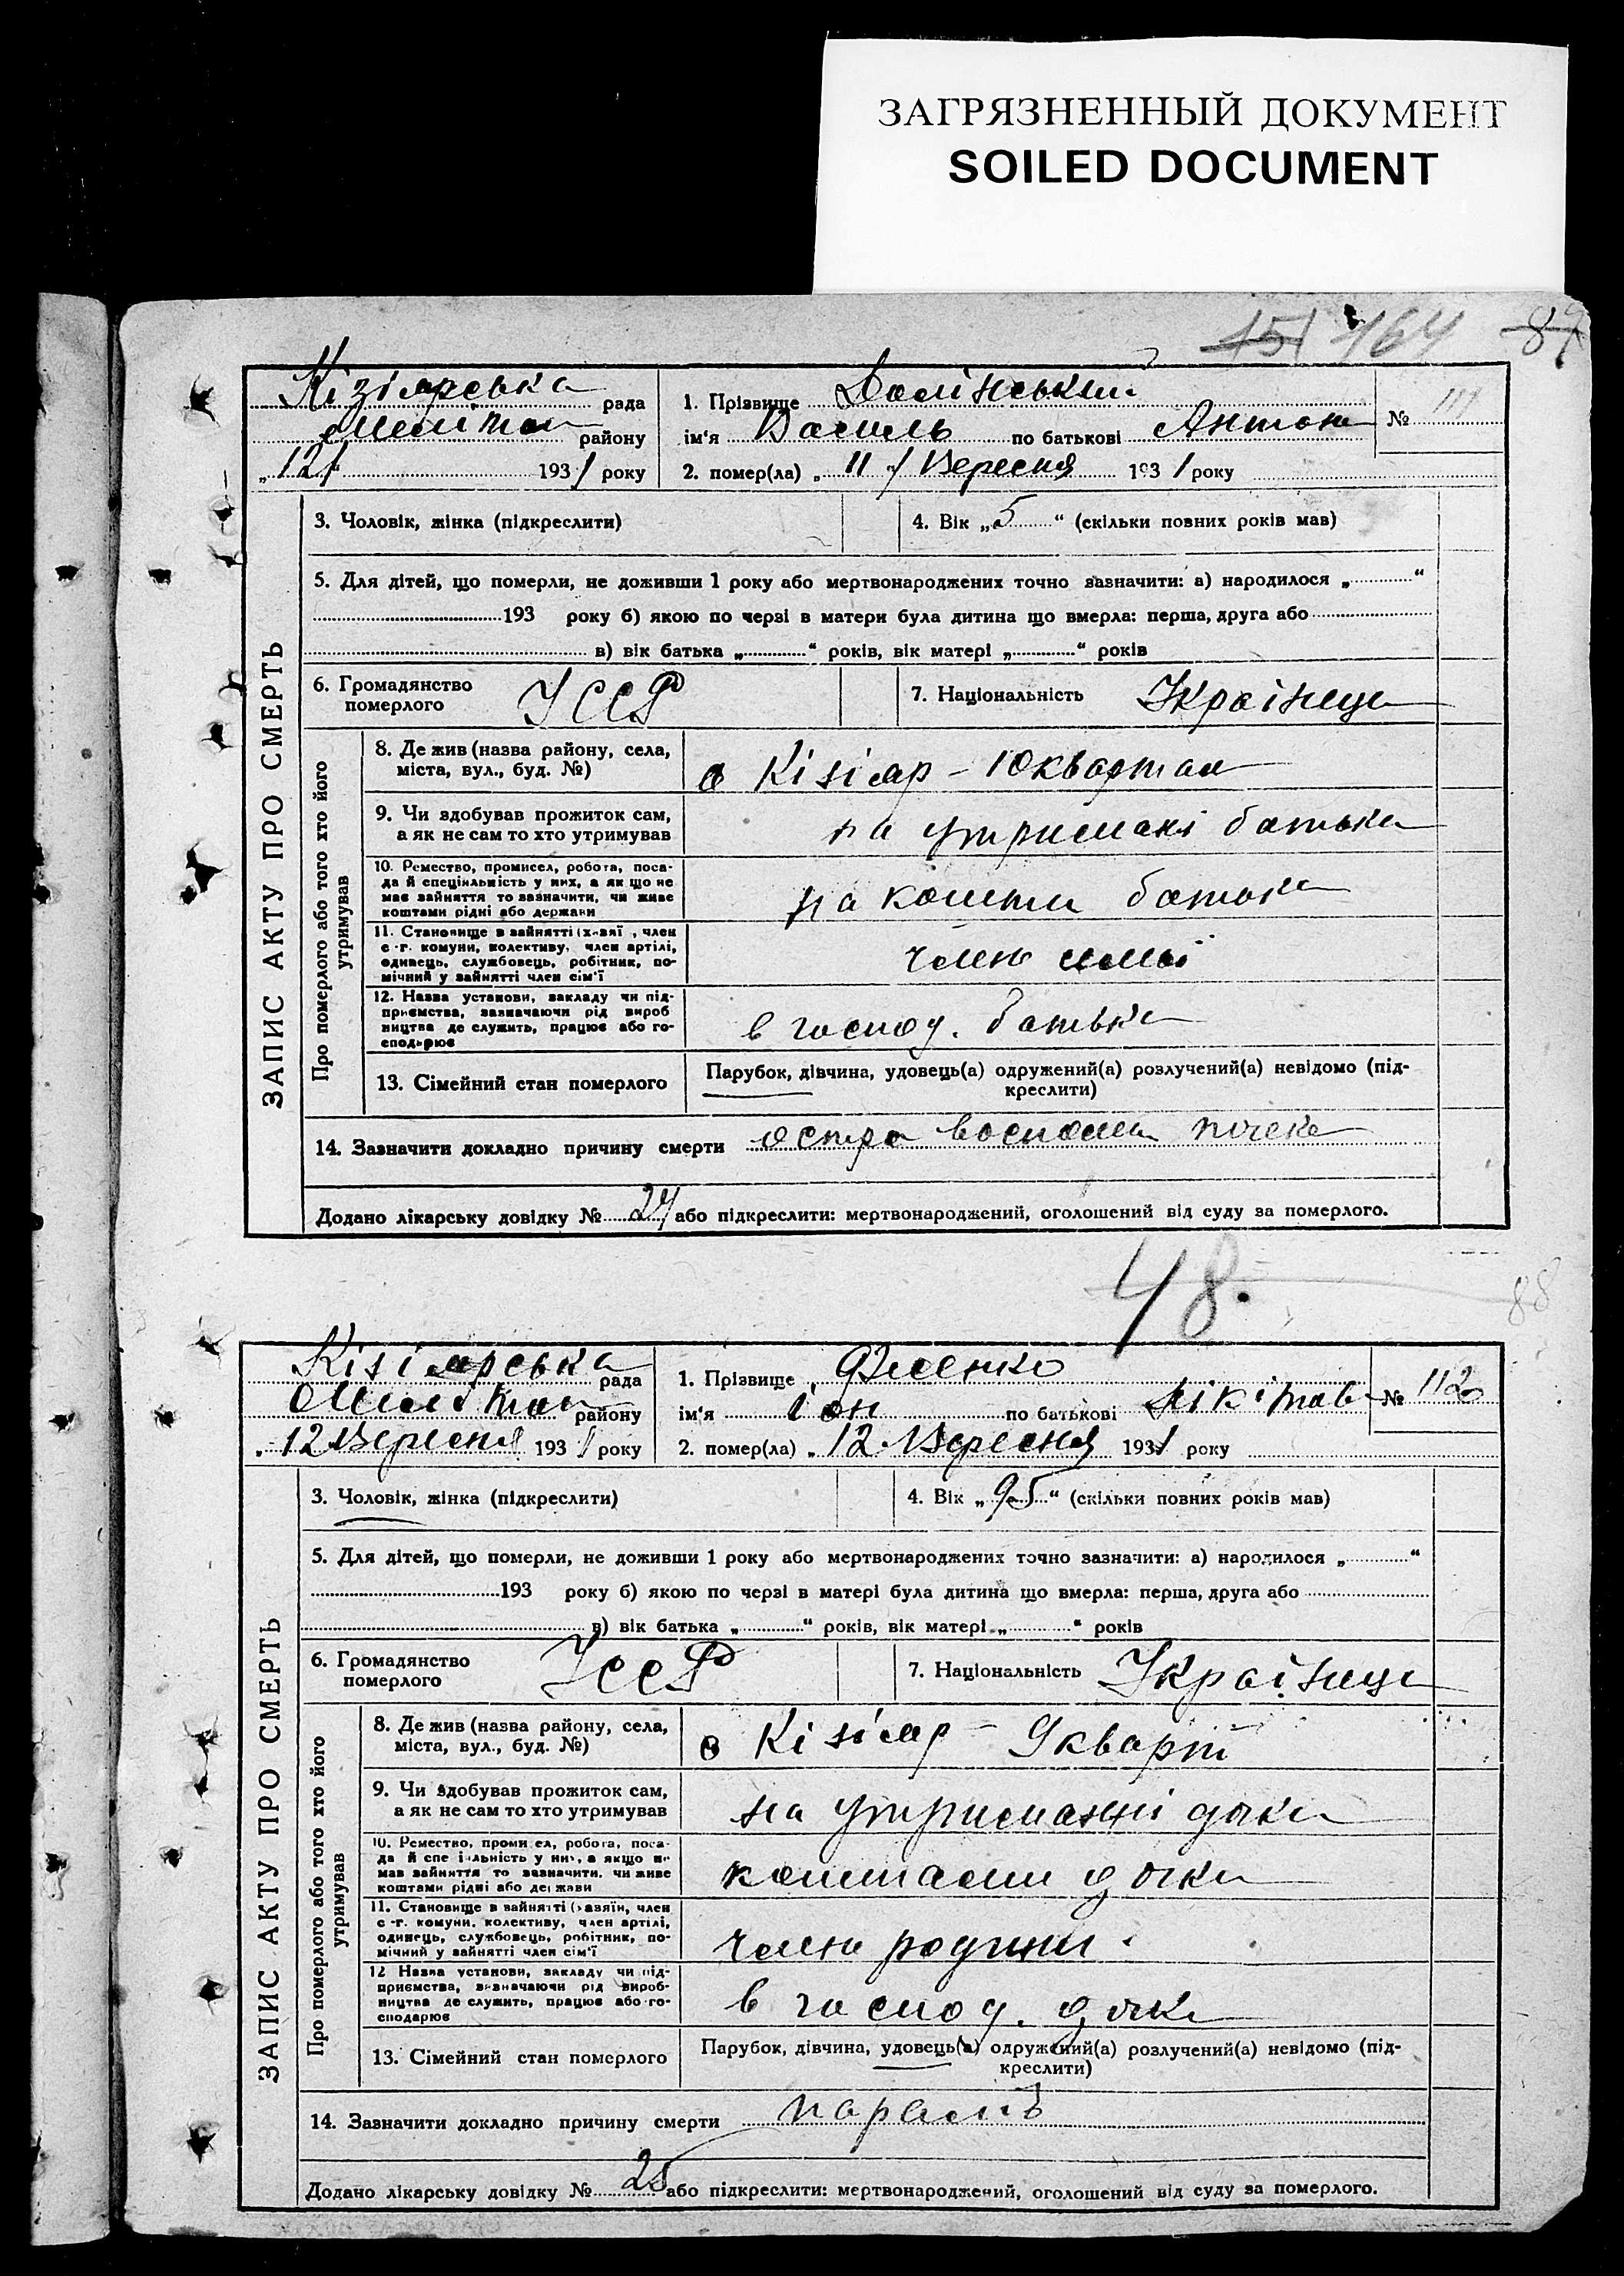 ЗАГРЯЗНЕННЫЙ ДОКУМЕНТ
SOILED DOCUMENT
151 164 87
ЗАПИС АКТУ ПРО СМЕРТЬ
Кізіярська рада
району
"12" 1931 року
1. Прізвище Долінський
ім'я Василь по батькові Антон
№ 111
2. помер(ла) „11" Вересня 1931 року
3. Чоловік, жінка (підкреслити)
4. Вік „5" (скільки повних років мав)
5. Для дітей, що померли, не доживши 1 року або мертвонароджених точно зазначити: а) народилося „ "
193 року б) якою по черзі в матери була дитина що вмерла: перша, друга або
в) вік батька „ " років, вік матері „ " років
6. Громадянство
померлого
УССР
7. Національність Українец
Про померлого або того хто його
утримував
8. Де жив (назва району, села,
міста, вул., буд. №)
Кізіяр - 10 квартал
9. Чи здобував прожиток сам,
а як не сам то хто утримував
на утримані батька
10. Ремество, промисел, робота, поса-
да й спеціяльність у них, а як що не
має зайняття то зазначити, чи живе
коштами рідні або держави
на кошти батька
11. Становище в зайнятті (хазяї, член
с.-г. комуни, колективу, член артілі,
одинець, службовець, робітник, по-
мічний у зайнятті член сім'ї
член
12. Назва установи, закладу чи під-
приємства, зазначаючи рід вироб
ництва де служить, працює або го-
сподарює
в господ. батька
13. Сімейний стан померлого
Парубок, дівчина, удовець(а) одружений(а) розлучений(а) невідомо (під-
креслити)
14. Зазначити докладно причину смерти остра воспален почек
Додано лікарську довідку № 24 або підкреслити: мертвонароджений, оголошений від суду за померлого.
48.
88
ЗАПИС АКТУ ПРО СМЕРТЬ
Кізіярська рада
району
„12 Вересня 1931 року
1. Прізвище
ім'я по батькові Нікітов
№ 112
2. помер(ла) „12 Вересня 1931 року
3. Чоловік, жінка (підкреслити)
4. Вік „95" (скільки повних років мав)
5. Для дітей, що померли, не доживши 1 року або мертвонароджених точно зазначити: а) народилося „ "
193 року б) якою по черзі в матері була дитина що вмерла: перша, друга або
в) вік батька „ " років, вік матері „ " років
6. Громадянство
померлого
УССР
7. Національність Українец
Про померлого або того хто його
утримував
8. Де жив (назва району, села,
міста, вул., буд. №)
Кізіяр - 9 кварт
9. Чи здобував прожиток сам,
а як не сам то хто утримував
на утриманні дочки
10. Ремество, промисел, робота, поса-
да й спеціяльність у них, а якщо не
мав зайняття то зазначити, чи живе
коштами рідні або держави
коштами дочки
11. Становище в зайнятті (хазяїн, член
с.-г. комуни, колективу, член артілі,
одинець, службовець, робітник, по-
мічний у зайнятті член сім'ї
член родини
12 Назва установи, закладу чи під-
приємства, зазначаючи рід вироб-
ництва де служить, працює або го-
сподарює
в господ. дочки
13. Сімейний стан померлого
Парубок, дівчина, удовець(а) одружений(а) розлучений(а) невідомо (під-
креслити)
14. Зазначити докладно причину смерти параліч
Додано лікарську довідку № 25 або підкреслити: мертвонароджений, оголошений від суду за померлого.